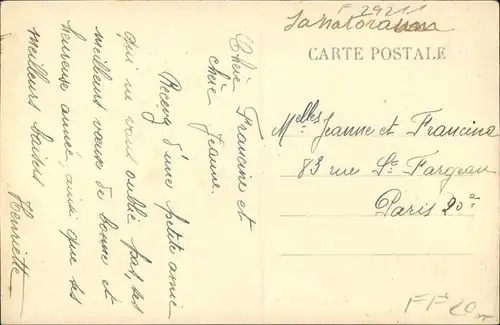 F 29211
Sanatorium
CARTE POSTALE
Chère Francine et
chère Jeanne.
Recevez d'une petite amie
qui ne vous oublie pas, ses
meilleurs vœux de bonne et
heureuse année ainsi que ses
meilleurs baisers
Henriette
Melles Jeanne et Francine
83 rue St. Fargeau
Paris 20e
FF 20